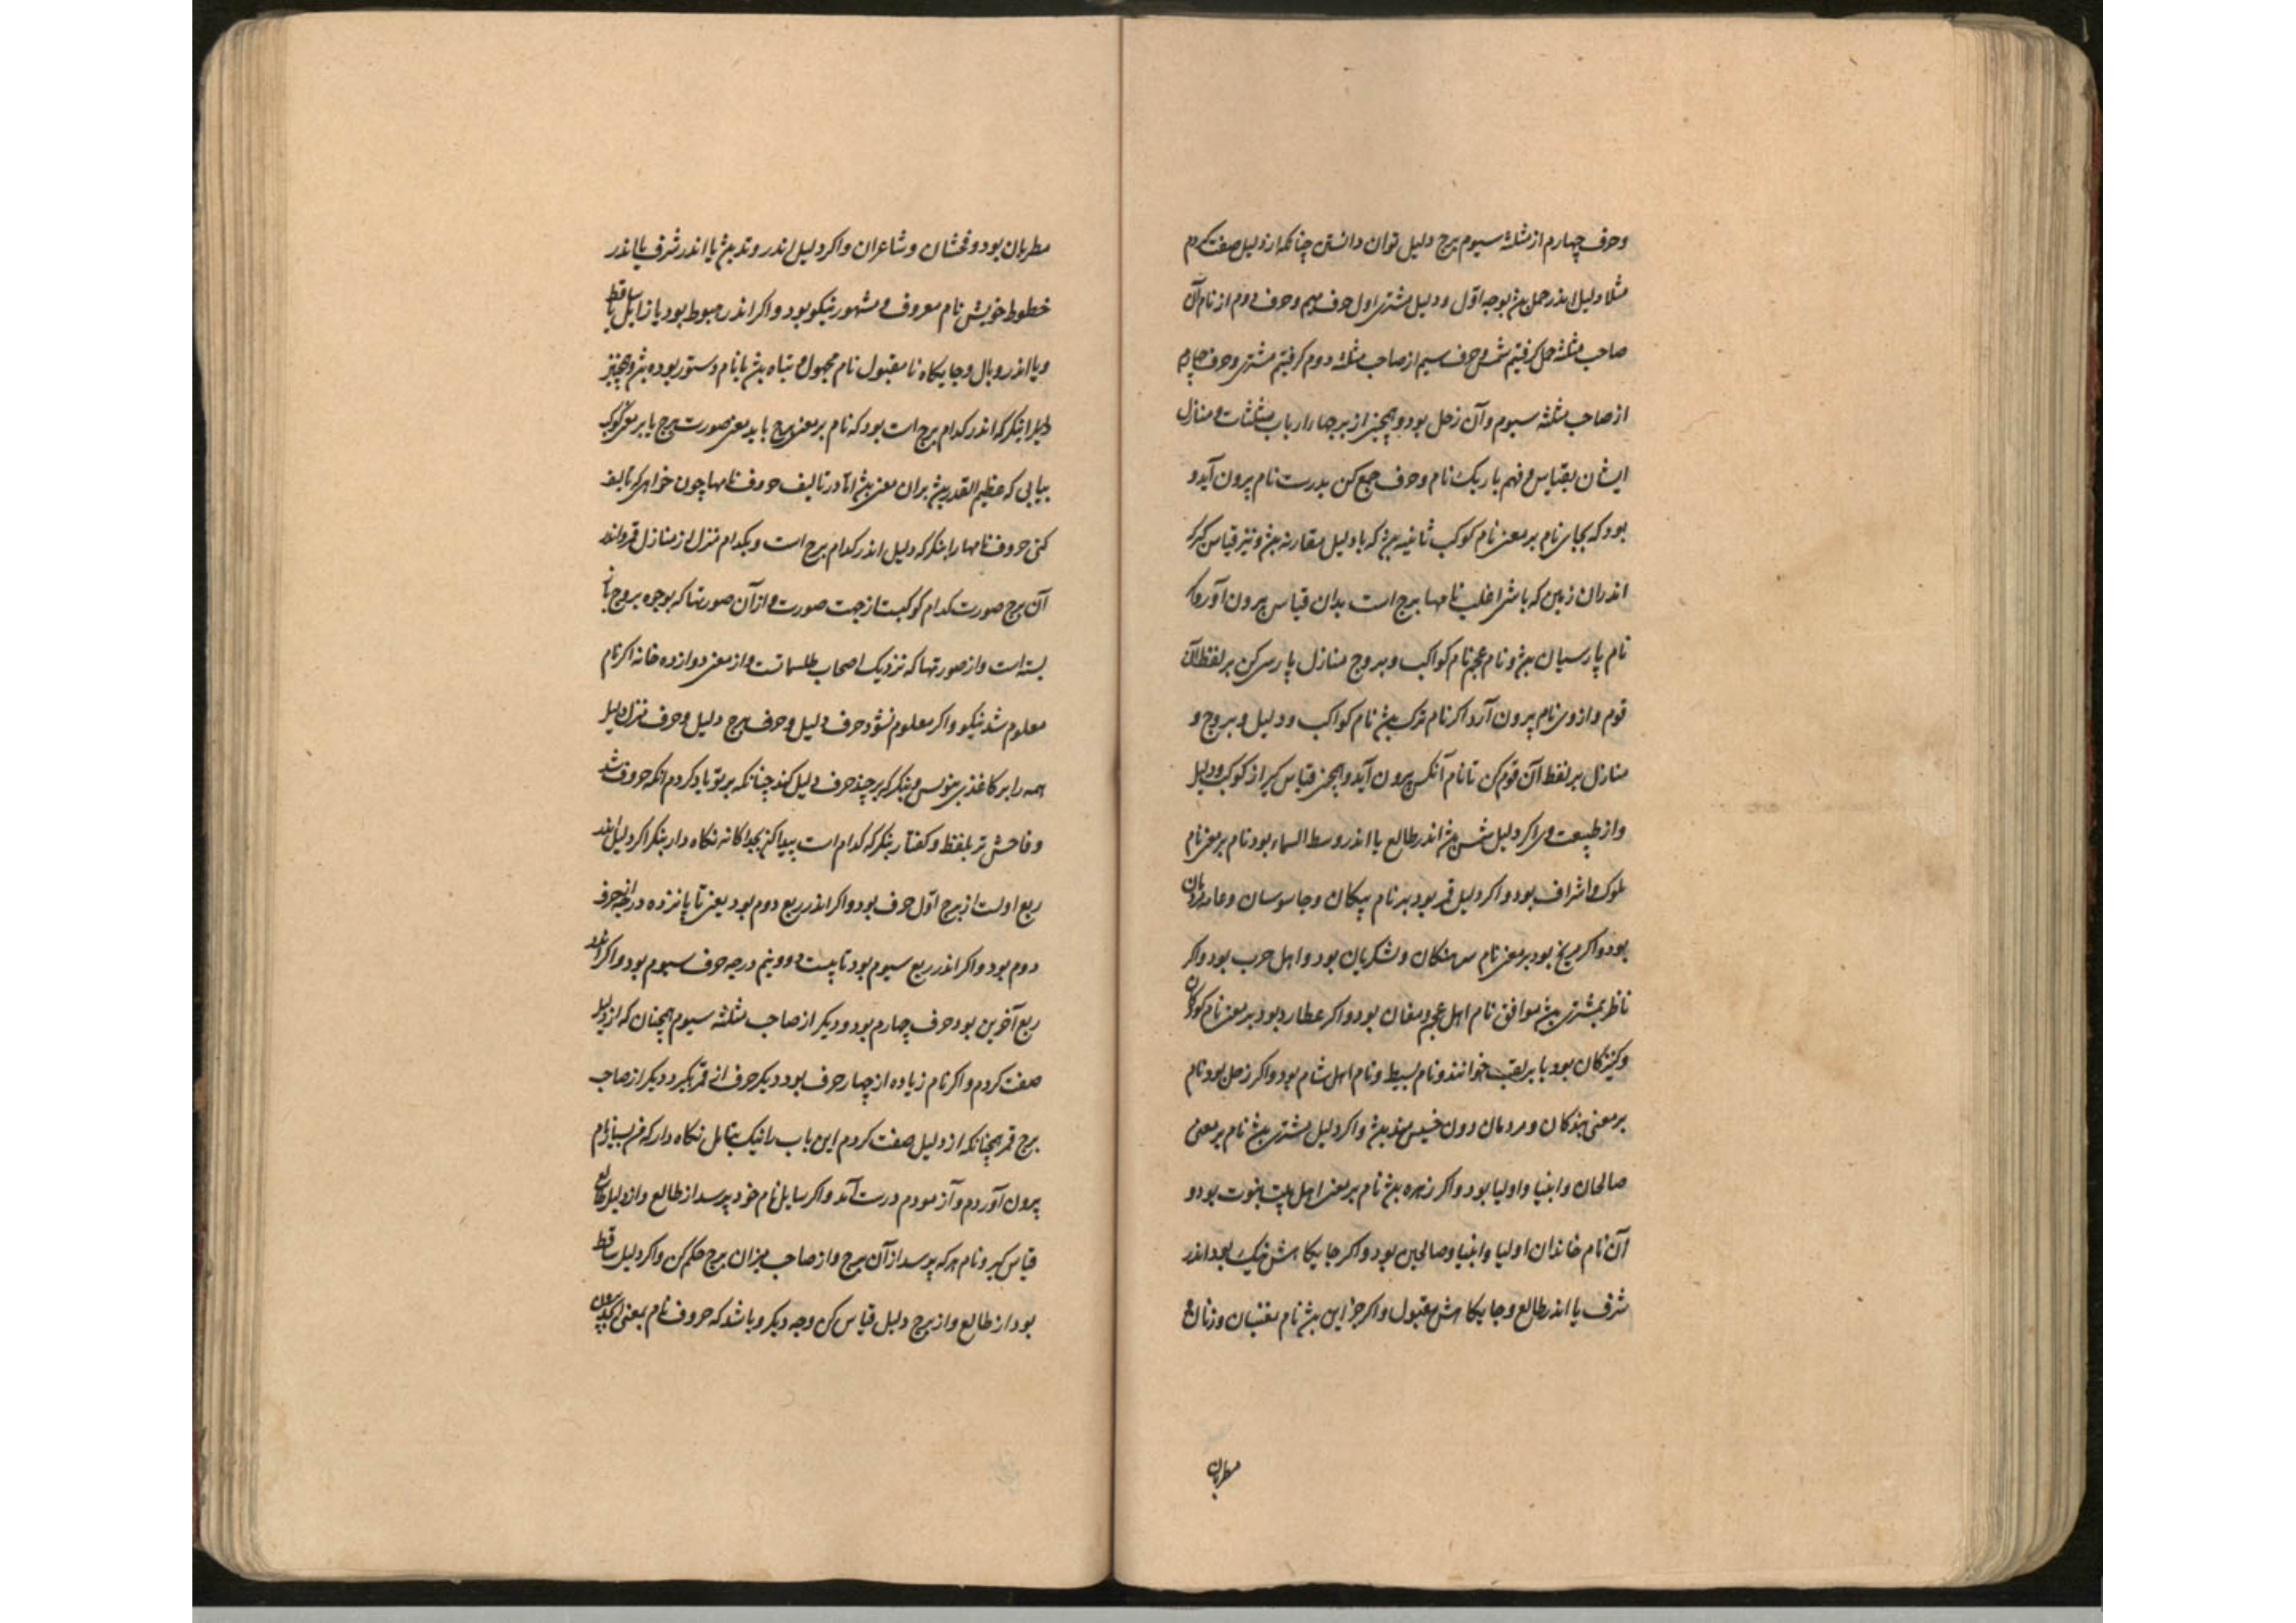 وحرف چهارم از مثلثه سیوم برج دلیل توان دانستن چنانکه از دلیل صفت کردم
مثلا دلیل اندر حمل بود بوجه اول و دلیل مشتری اول حرف وحرف دوم از نام آن
صاحب مثلثه حمل کرفتیم شمس وحرف سیم از صاحب مثلثه دوم کرفتیم مشتری وحرف چهارم
از صاحب مثلثه سیوم وآن زحل بود وهمچنین از برجها را ارباب مثلثات و منازل
ایشان بقیاس و فهم باریک نام وحرف جمع کن بدرست نام بیرون آید و
بود که بجای نام بر معنی نام کوکب ثانیه باشد که با دلیل مقارنه باشد و نیز قیاس کیر که
اندران زمین که باشد اغلب نامها برج است بدان قیاس بیرون آور
نام پارسیان باشد و نام عجم نام کواکب و بروج منازل پارسی کن بر لفظ آن
قوم و از وی نام بیرون آرد اکر نام ترک باشد نام کواکب و دلیل و بروج و
منازل بر لفظ آن قوم کن تا نام آنکس بیرون آید و همچنین قیاس کیر از کوکب دلیل
واز طبیعت وی اکر دلیل شمس باشد اندر طالع یا اندر وسط السماء بود نام بر معنی نام
ملوک و اشراف بود و اکر دلیل قمر بود بر نام پیکان و جاسوسان و عامه مردمان
بود و اکر مریخ بود بر معنی نام سرهنکان و لشکریان بود و اهل حرب بود و اکر
ناظر بمشتری باشد موافق نام اهل عجم و مغان بود و اکر عطارد بود بر معنی نام کودکان
وکنیزکان بود یا بر لقب خوانند و نام بسیط و نام اهل شام بود و اکر زحل بود نام
بر معنی بندکان و مردمان دون خسیس باشد و اکر دلیل مشتری باشد نام بر معنی
صالحان و انبیا و اولیا بود و اکر زهره باشد نام بر معنی اهل بیت نبوت بود و
آن نام خاندان اولیا و انبیا و صالحین بود و اکر جایکاهش نیک بود اندر
شرف یا اندر طالع و جایکاهش مقبول و اکر جز این باشد نام مغنیان و زنان و
مطربان
مطربان بود و فحشان و شاعران و اکر دلیل اندر وتد باشد یا اندر شرف یا اندر
خطوط خویش نام معروف و مشهور نیکو بود و اکر اندر هبوط بود یا زایل یا ساقط
ویا اندر وبال و جایکاه نا مقبول نام مجهول و تباه باشد یا نام دستور بوده باشد وهمچنین
دلیل را بنکر که اندر کدام برج است بود که نام بر معنی برج یا بر معنی صورت برج یا بر معنی کوکب
بیابی که عظیم القدر باشد بران معنی باشد اما در تالیف حروف نامها چون خواهی که تالیف
کنی حروف نامها را بنکر که دلیل اندر کدام برج است و بکدام منزل از منازل قمر و اندر
آن برج صورت کدام کوکبست از جهت صورت و از آن صورتها که بوجوه بروج
بسته است و از صورتها که نزدیک اصحاب طلسماتست و از معنی دوازده خانه اکر نام
معلوم شد نیکو و اکر معلوم نشود حرف دلیل و حرف برج دلیل و حرف منزل دلیل
همه را بر کاغذی بنویس و بنکر که بر چند حرف دلیل کند چنانکه بر تو یاد کردم آنکه حروف
وفاحش تر بلفظ و کفتار بنکر که کدام است پیدا کن بجداکانه نکاه دار بنکر اکر دلیل اندر
ربع اولست از برج اول حرف بود و اکر اندر ربع دوم بود یعنی تا پانزده درجه حرف
دوم بود و اکر اندر ربع سیوم بود تا بیست و دو و نیم درجه حرف سیوم بود و اکر اندر
ربع آخرین بود حرف چهارم بود و دیکر از صاحب مثلثه سیوم همچنان که از دلیل
صفت کردم و اکر نام زیاده از چهار حرف بود دیکر حرف از قمر بکیر و دیکر از صاحب
برج قمر همچنانکه از دلیل صفت کردم این باب را نیک بتامل نکاه دار که من بسیار نام
بیرون آوردم و آزمودم درست آمد و اکر سایل نام خود پرسد از طالع و از دلیل طالع
قیاس کیر و نام هر که پرسد از آن برج و از صاحب میزان برج حکم کن و اکر دلیل ساقط
بود از طالع و از برج دلیل قیاس کن وجه دیکر و باشد که حروف نام بمعنی